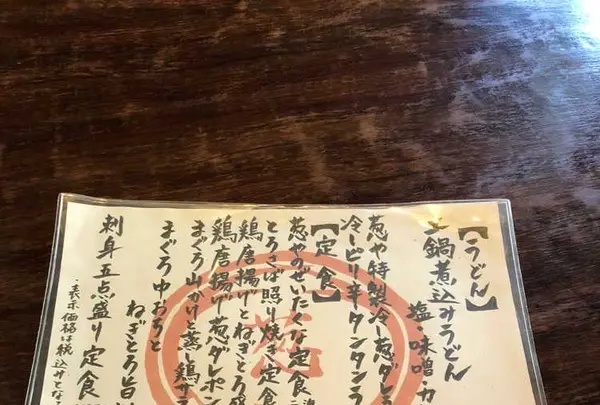 【うどん】
土鍋煮込みうどん
塩 味噌 カ
葱や特製冷し葱ダレう
冷しピリ辛タンタンう
【定食】
葱やのぜいたくな定食
とろさば照り焼き定食
鶏唐揚げとねぎとろ
鶏唐揚げ葱ダレポン
まぐろ山かけと蒸し鶏サラ
まぐろ中おちと
ねぎとろ旨
刺身五点盛り定食
・表示価格は税込みとな
葱